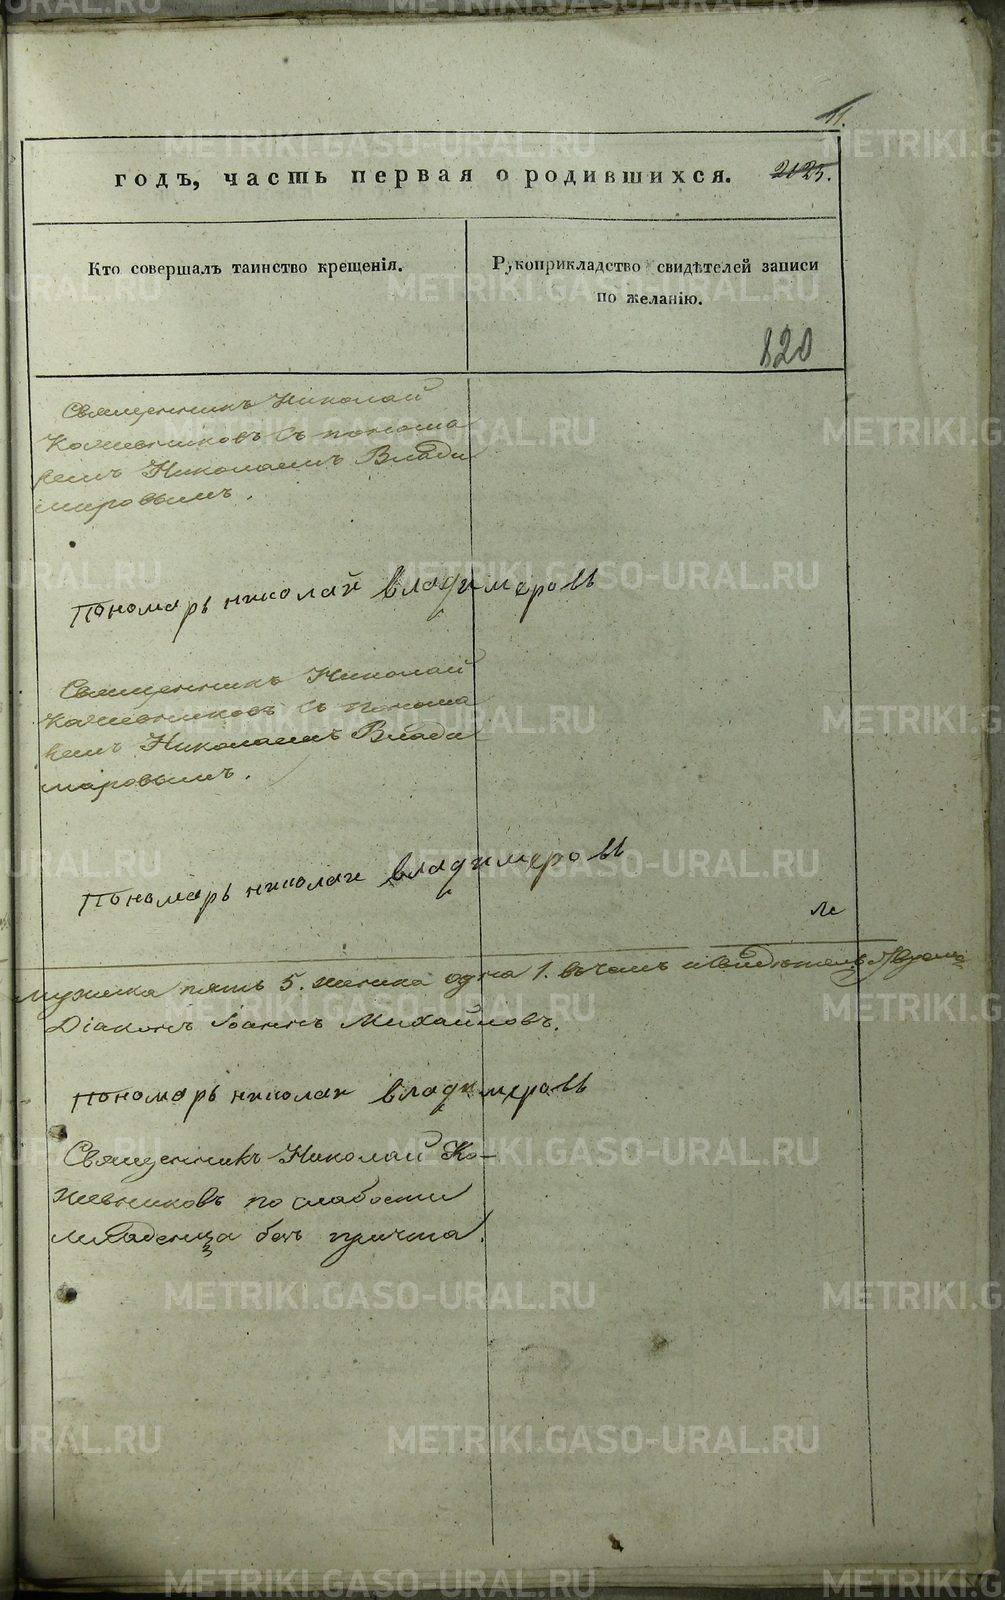 11.
годъ, часть первая о родившихся. 2125.
Кто совершалъ таинство крещенія.
Рукоприкладство свидѣтелей записи
по желанію.
820
Священникъ Николай
Кожевниковъ съ понома
ремъ Николаемъ Влади
мировымъ.
Пономарь николай владимеровъ
Священникъ Николай
Кожевниковъ съ понома
ремъ Николаемъ Влади
мировымъ.
Пономарь николаи владимеровъ
мужеска пять 5. женска одна 1. въ чемъ и свидѣтельствуемъ
Діаконъ Іоаннъ Михайловъ.
Пономарь николаи владимеровъ
Священникъ Николай Ко-
жевниковъ по слабости
младенца безъ причта.
METRIKI.GASO-URAL.RU